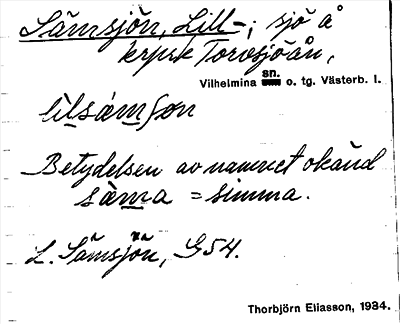 Sämsjön, Lill-; sjö å
krpsk Torvsjöån,
Vilhelmina sn. o. tg. Västerb. l.
lilsämʃön
Betydelsen av namnet okänd
säma = simma.
L. Sämsjön, G54.
Thorbjörn Eliasson, 1934.